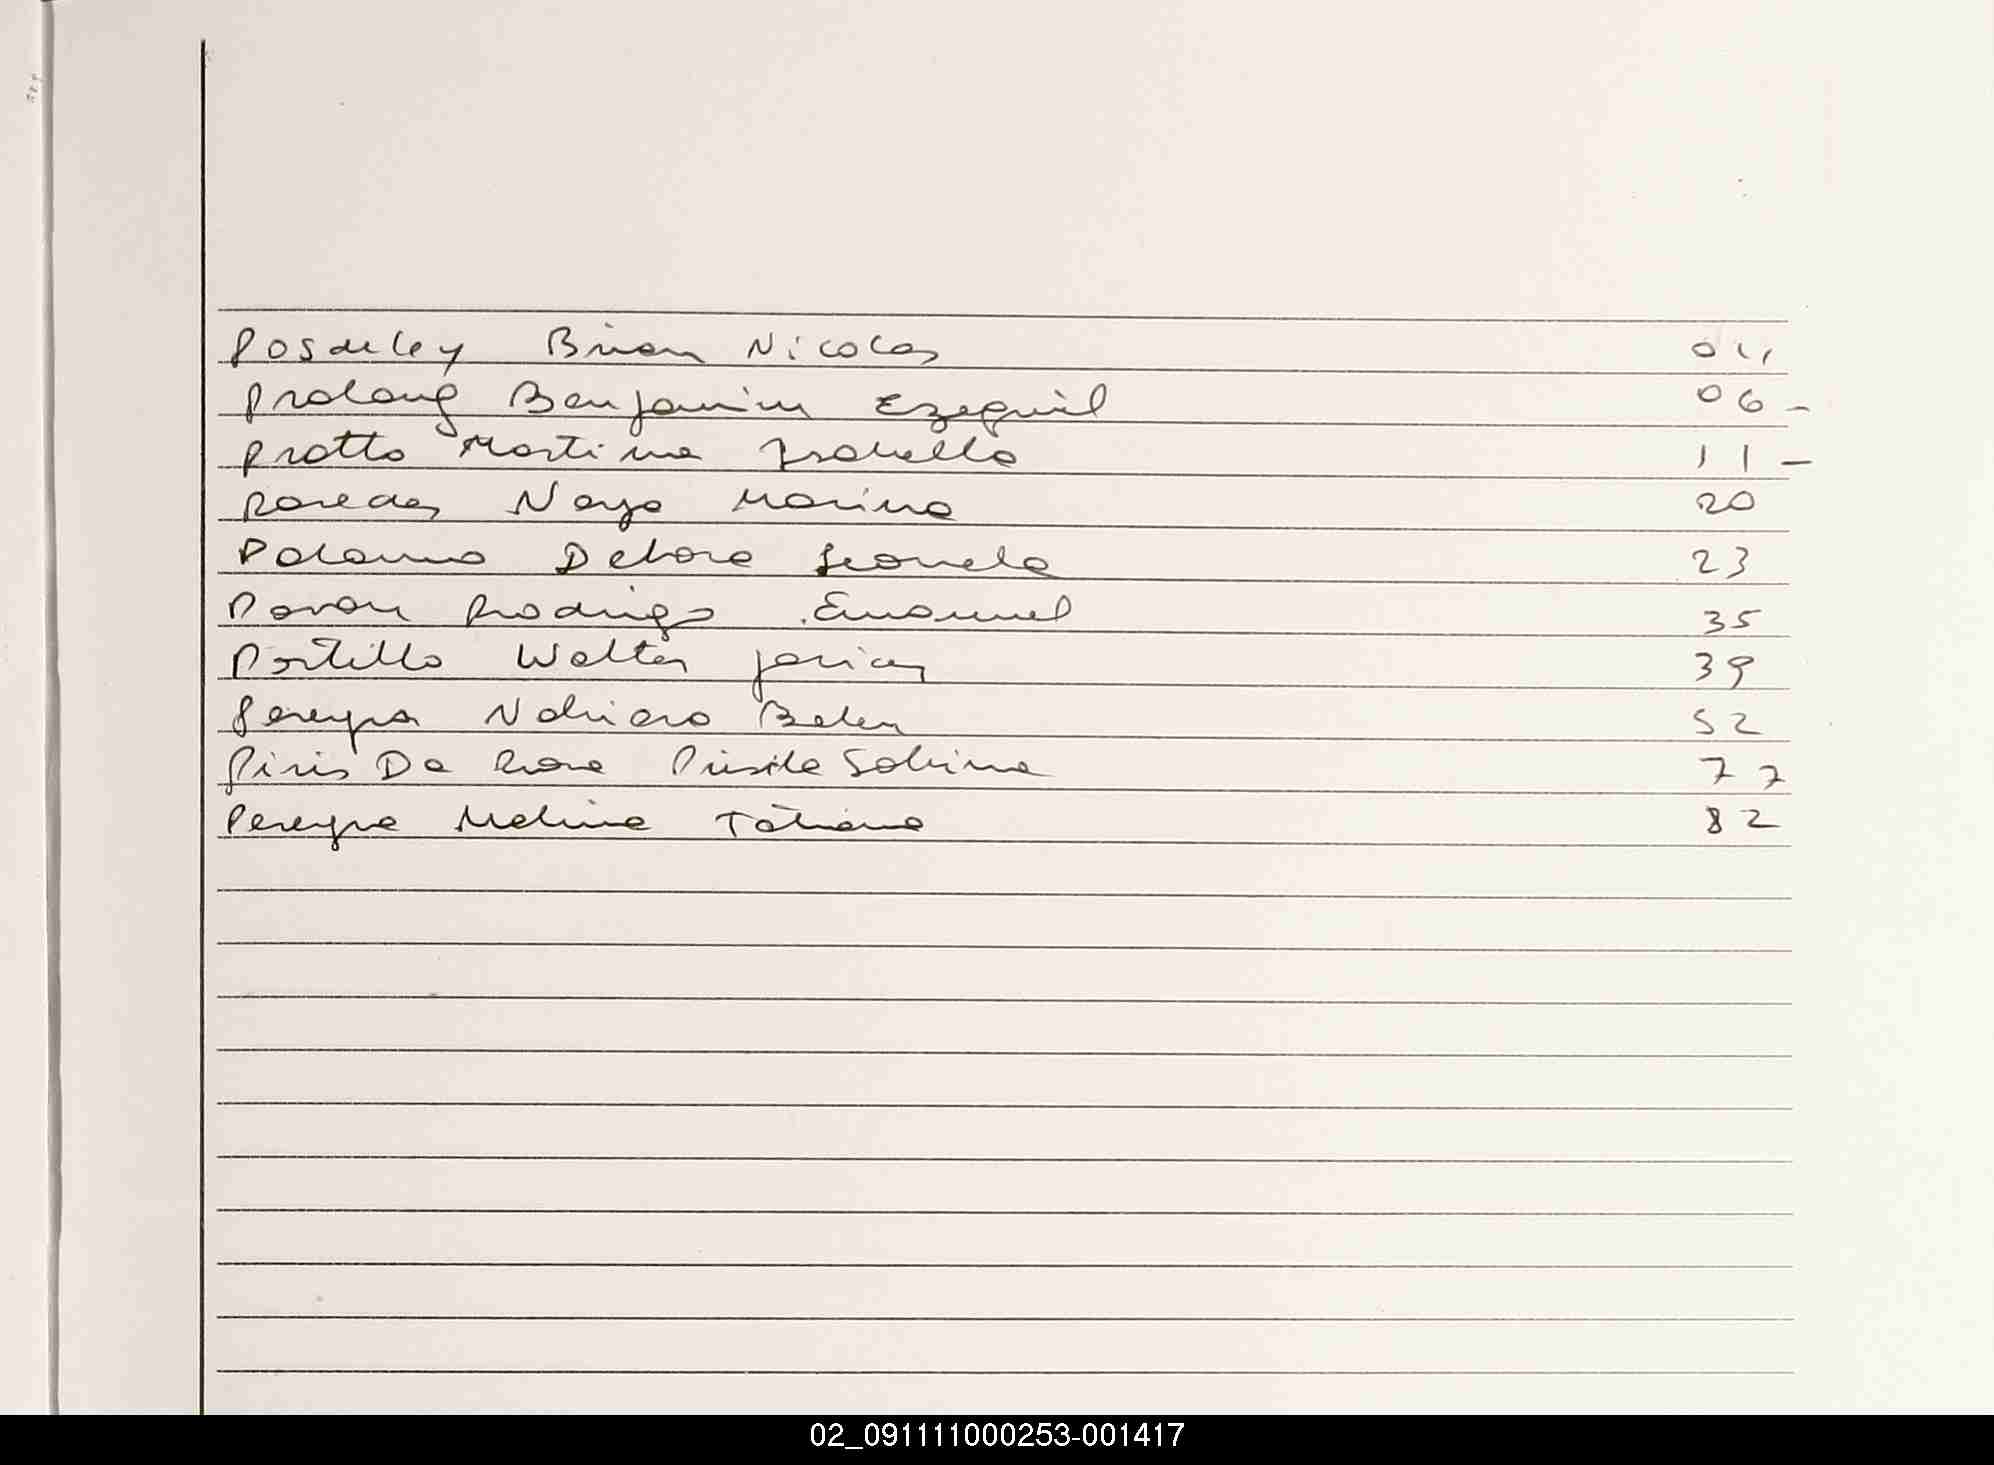 Posdeley Brian Nicolas 04
Pralong Benjamin Ezequiel 06 -
Protto Martina Isabella 11 -
Paredes Naya Marina 20
Palomo Debora Leonela 23
Pavon Rodrigo Emanuel 35
Portillo Walter Javier 39
Pereyra Nahiara Belen 52
Piris Da Rosa Prisila Sabina 77
Pereyra Melina Tatiana 82
02_091111000253-001417